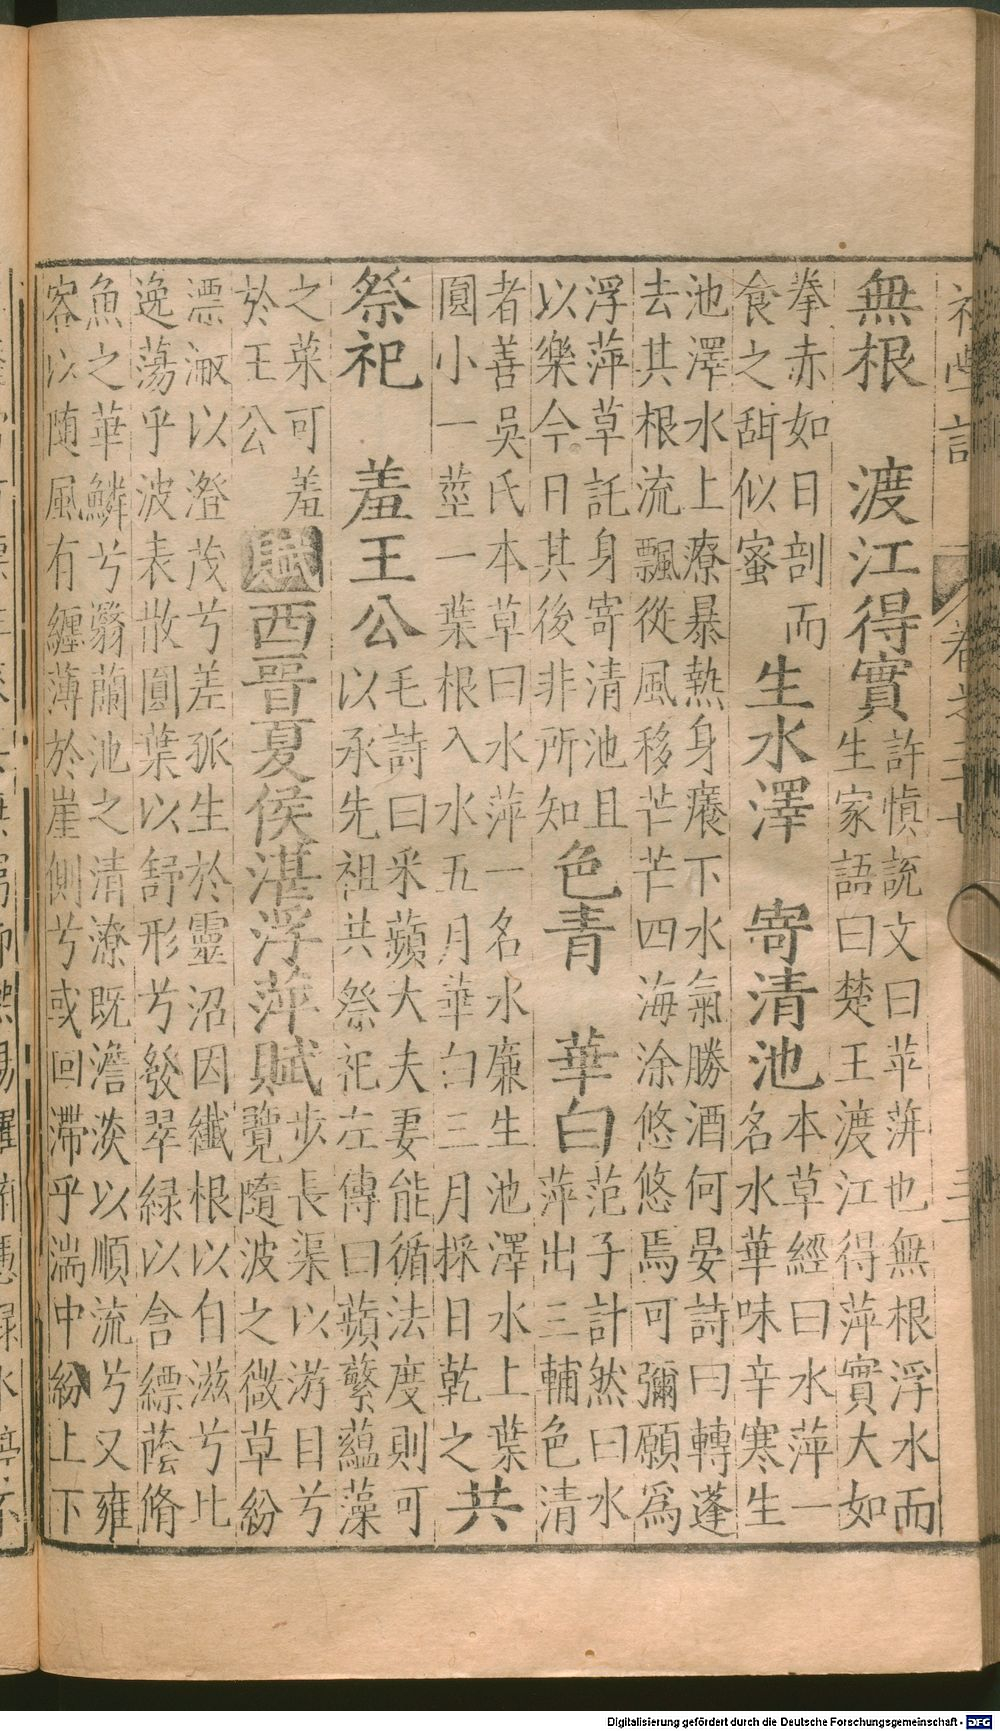 無根　渡江得實許慎説文曰苹蓱也無根浮水而
生家語曰楚王渡江得萍實大如
拳赤如日剖而
食之甜似蜜
生水澤　寄清池本草經曰水萍一
名水華味辛寒生
池澤水上療暴熱身癢下水氣勝酒何晏詩曰轉蓬
去其根流飄從風移芒芒四海涂悠悠焉可彌願爲
浮萍草託身寄清池且
以樂今日其後非所知
色青　華白范子計然曰水
萍出三輔色清
者善吳氏本草曰水萍一名水廉生池澤水上葉
圓小一莖一葉根入水五月華白三月採日乾之
共
祭祀　羞王公毛詩曰采蘋大夫妻能循法度則可
以承先祖共祭祀左傳曰蘋蘩藴藻
之菜可羞
於王公
賦西晉夏侯湛浮萍賦步長渠以游目兮
覽隨波之微草紛
漂潎以澄茂兮差孤生於靈沼因纖根以自滋兮比
逸蕩乎波表散圓葉以舒形兮發翠緑以含縹蔭脩
魚之華鱗兮翳蘭池之清潦既澹淡以順流兮又雍
容以随風有纏薄於崖側兮或回滯乎湍中紛上下
卷之二十七
Digitalisierung gefördert durch die Deutsche Forschungsgemeinschaft - DFG